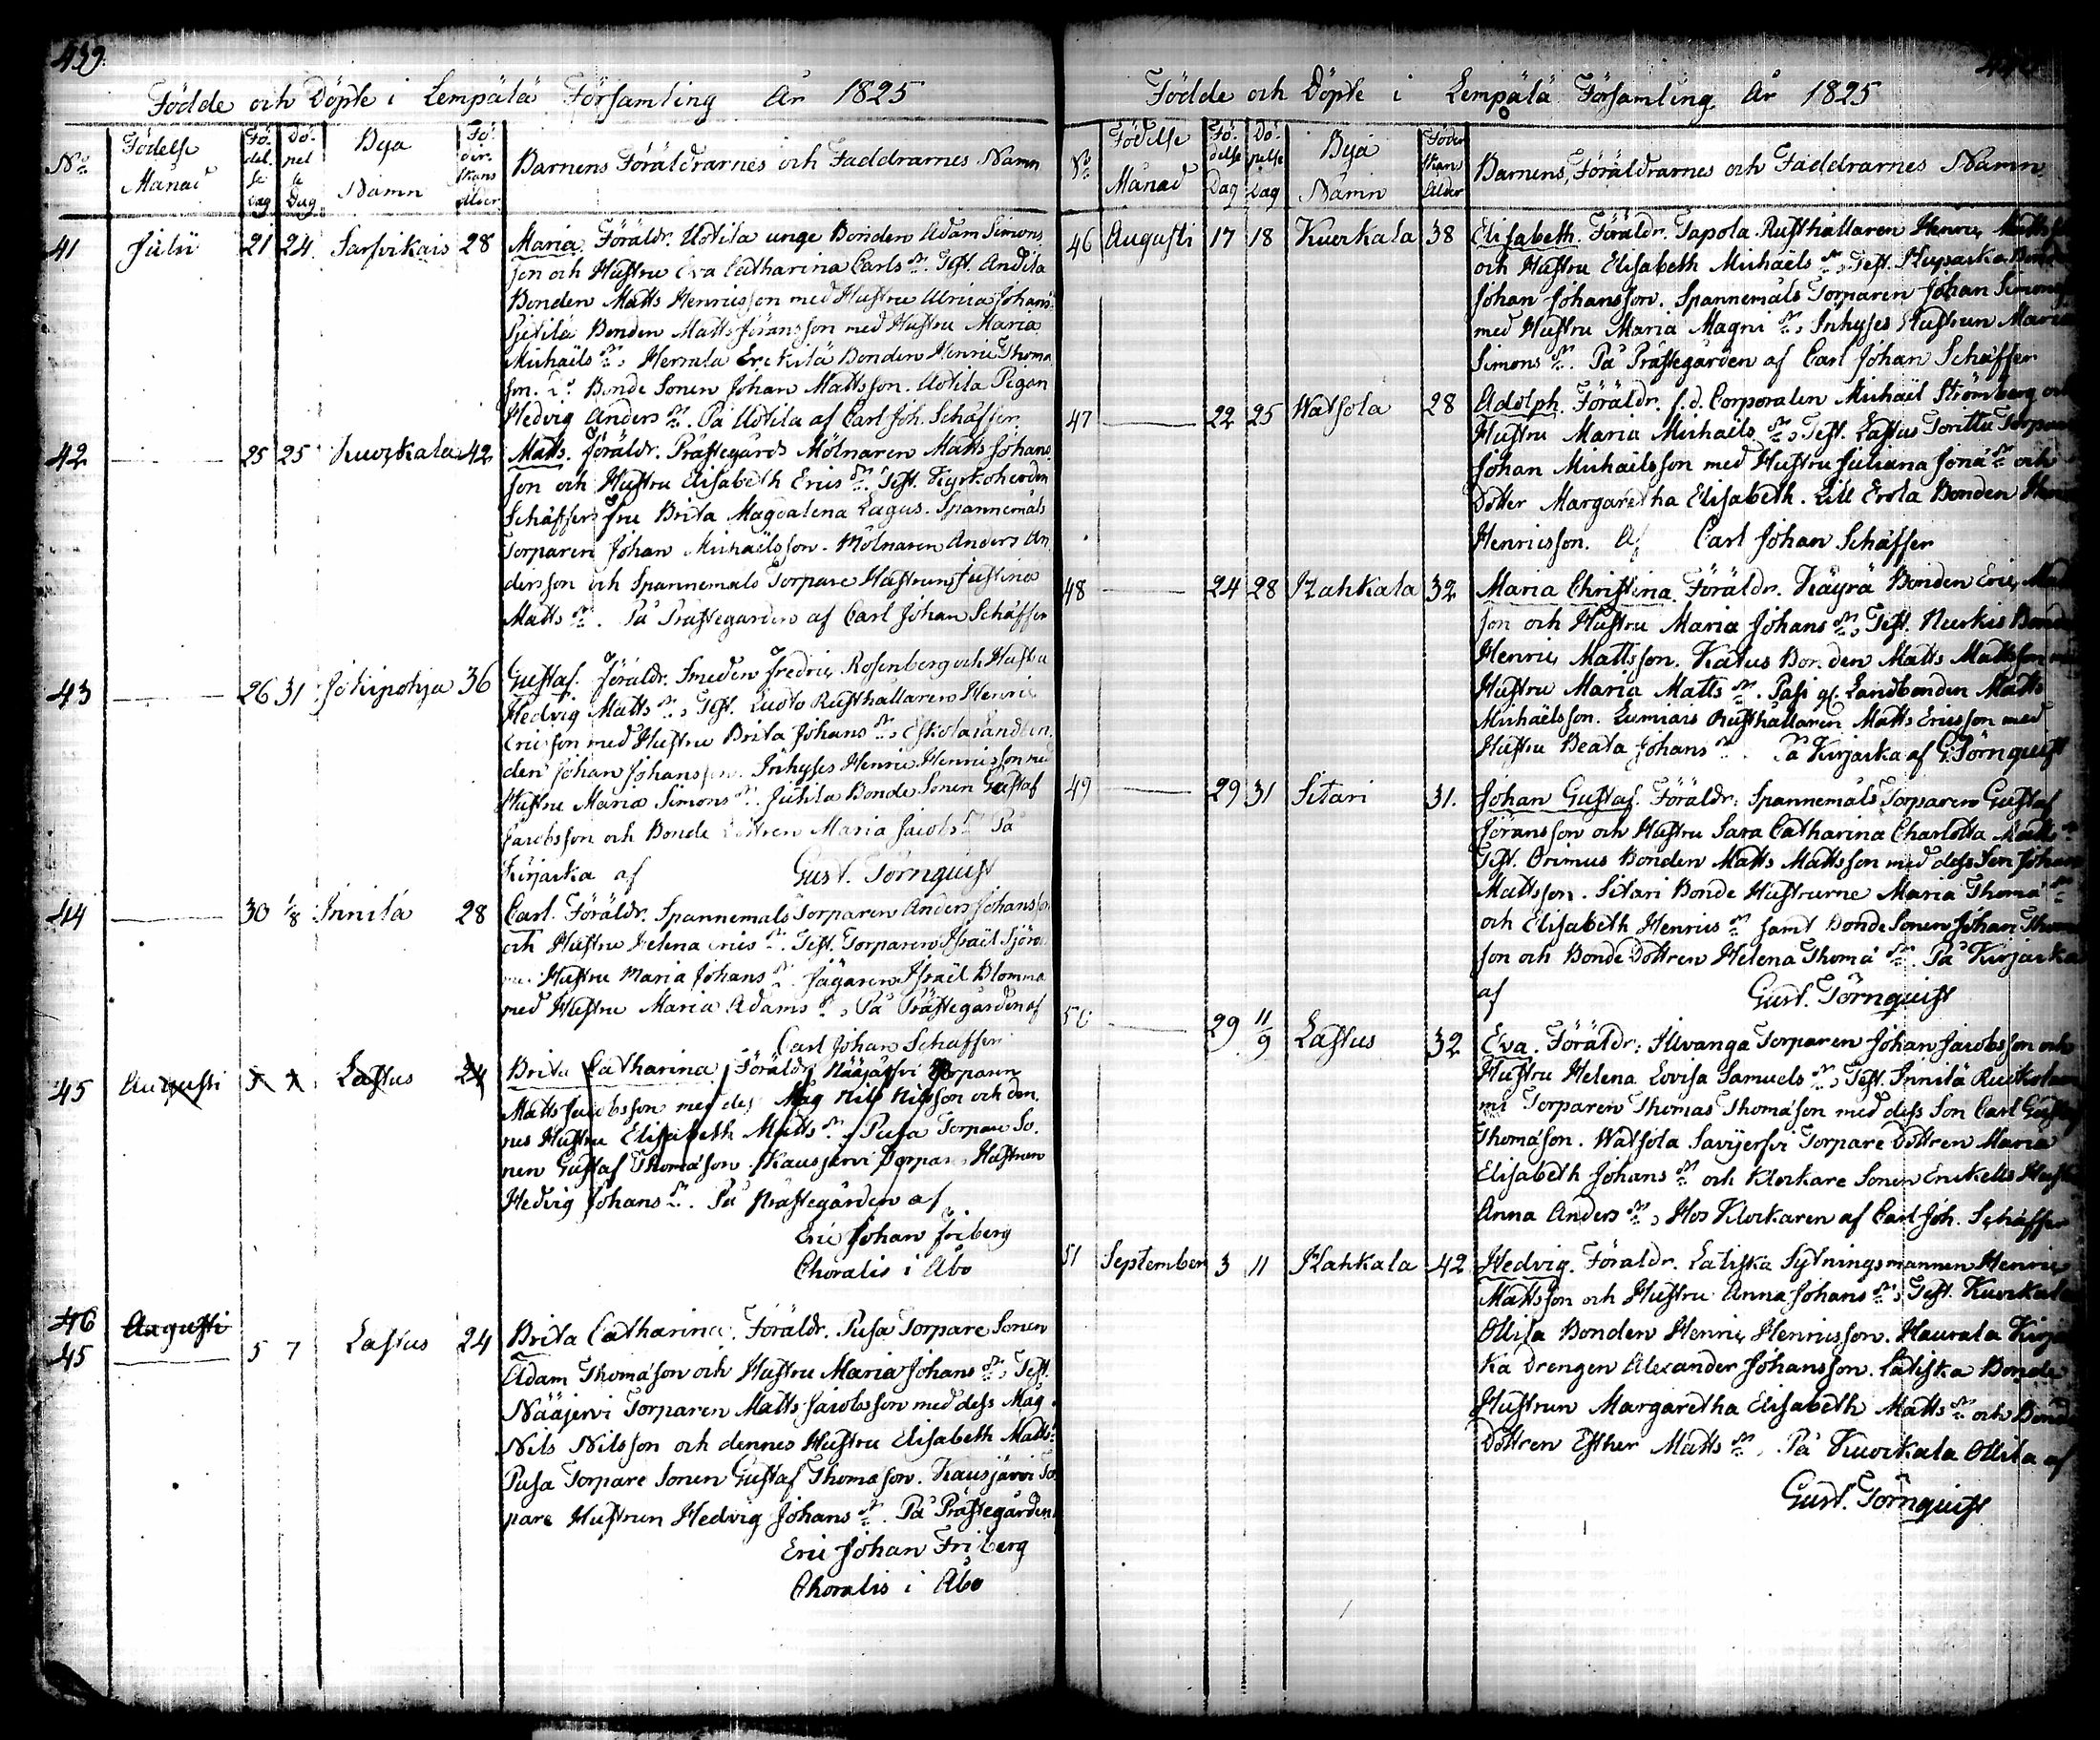 439.
Födde och Döpte i Lempälä Församling År 1825
No Födelse Månad Födelse Dag Döpelse Dag Bya Namn Föderskans ålder Barnens Föräldrarnes och Faddrarnes Namn
41 Julii 21 24. Sarfvikais 28 Maria. Föräldr. Uotila unge Bonden Adam Simons
son och Hustru Eva Catharina Carls dr. Test. Andila
Bonden Matts Henricsson med Hustru Ulrica Johans
Pietilä Bonden Matts Göransson med Hustru Maria
Michaëls dr, Herrala Erckilä Bonden Henric Thoma
son. Bonde Sonen Johan Mattsson. Uotila Pigan
Hedvig Anders dr. På Uotila af Carl Joh. Schäffer.
42 25 25 Kuockala 42 Matts. Föräldr. Prästegårds Mölnaren Matts Johans
son och Hustru Elisabeth Erics dr. Test. Kyrkoherden
Schäffers fru Brita Magdalena Lagus. Spannemåls
Torparen Johan Michaëlsson. Mölnaren Anders An
dersson och Spannemåls Torpare Hustrun Justina
Matts dr. På Prästegården af Carl Johan Schäffer
43 26 31 Jokipohja 36 Gustaf. Föräldr. Smeden Fredric Rosenberg och Hustru
Hedvig Matts dr, Test. Luoto Rusthållaren Henric
Ericsson med Hustru Brita Johans dr, Eskola Landbon
den Johan Johansson. Inhyses Henric Henricsson med
Hustru Maria Simons dr. Jutila Bonde Sonen Gustaf
Jacobsson och Bonde Dottren Maria Jacobs dr På
Kirjaska af Gust. Törnquist
44 30 1/8 Innilä 28 Carl. Föräldr. Spannemåls Torparen Anders Johansson
och Hustru Helena Erics dr. Test. Torparen Israël
Hustru Maria Johans dr. Jägaren Israël Blomma
med Hustru Maria Adams dr, På Prästegården af
Carl Johan Schäffer
45 Augusti 5 7 Lastus 24 Brita Catharina Föräldr Nääjärfvi Torparen
Matts Jacobsson med dess Måg Nils Nilsson och den
nes Hustru Elisabeth Matts dr, Pusa Torpare So
nen Gustaf Thomasson. Kausjärvi Torpare Hustrun
Hedvig Johans dr. På Prästegården af
Eric Johan Friberg
Choralis i Åbo
46 Augusti
45 5 7 Lastus 24 Brita Catharina. Föräldr. Pusa Torpare Sonen
Adam Thomasson och Hustru Maria Johans dr, Test.
Nääjervi Torparen Matts Jacobsson med dess Måg
Nils Nilsson och dennes Hustru Elisabeth Matts
Pusa Torpare Sonen Gustaf Thomasson. Kausjärvi Tor
pare Hustrun Hedvig Johans dr. På Prästegården
Eric Johan Friberg
Choralis i Åbo
Födde och Döpte i Lempälä Församling År 1825
No Födelse Månad Födelse Dag Döpelse Dag Bya Namn Föderskans Ålder Barnens, Föräldrarnes och Faddrarnes Namn
46 Augusti 17 18 Kuockala 38 Elisabeth. Föräldr. Tapola Rusthållaren Henric Matts
och Hustru Elisabeth Michaëls dr, Test.
Johan Johansson. Spannemåls Torparen Johan Simons
med Hustru Maria Magni dr, Inhyses Hustrun Maria
Simons dr. På Prästegården af Carl Johan Schäffer
47 22 25 Watsola 28 Adolph. Föräldr. f.d. Corporalen Michaël Strömberg och
Hustru Maria Michaëls dr, Test. Lastus Torittu Torpar
Johan Michaëlsson med Hustru Juliana Jona dr och
Dotter Margaretha Elisabeth. Lill Erola Bonden Henric
Henricsson. Af Carl Johan Schäffer
48 24 28 Rahkala 32 Maria Christina. Föräldr. Käyrä Bonden Eric Matts
son och Hustru Maria Johans dr, Test. Nurkis Bonden
Henric Mattsson. Katus Bonden Matts Mattsson med
Hustru Maria Matts dr. Pasi gl. Landbonden Matts
Michaëlsson. Lumiais Rusthållaren Matts Ericsson med
Hustru Beata Johans dr. På Kirjaska af G. Törnquist
49 29 31 Sitari 31. Johan Gustaf. Föräldr. Spannemåls Torparen Gustaf
Göransson och Hustru Sara Catharina Charlotta Matts dr
Test. Orimus Bonden Matts Mattsson med dess Son Johan
Mattsson. Sitari Bonde Hustrurne Maria Thoma dr
och Elisabeth Henrics dr samt Bonde Sonen Johan Thoma
son och Bonde Dottren Helena Thoma dr. På Kirjaska
af Gust. Törnquist
50 29 11/9 Lastus 32 Eva. Föräldr: Ilvanga Torparen Johan Jacobsson och
Hustru Helena Lovisa Samuels dr, Test. Innilä
Torparen Thomas Thomasson med dess Son Carl Gustaf
Thomasson. Watsola Savijerfvi Torpare Dottren Maria
Elisabeth Johans dr och Klockare Sonen Enckells Hustru
Anna Anders dr, Hos Klockaren af Carl Joh. Schäffer
51 September 3 11 Rahkala 42 Hedvig. Föräldr. Latiska Sytningsmannen Henric
Mattsson och Hustru Anna Johans dr, Test. Kuockala
Ollila Bonden Henric Henricsson. Haurala Kirja
ka Drengen Alexander Johansson. Latiska Bonde
Hustrun Margaretha Elisabeth Matts dr och Bonde
Dottren Esther Matts dr. På Kuockala Ollila af
Gust. Törnquist